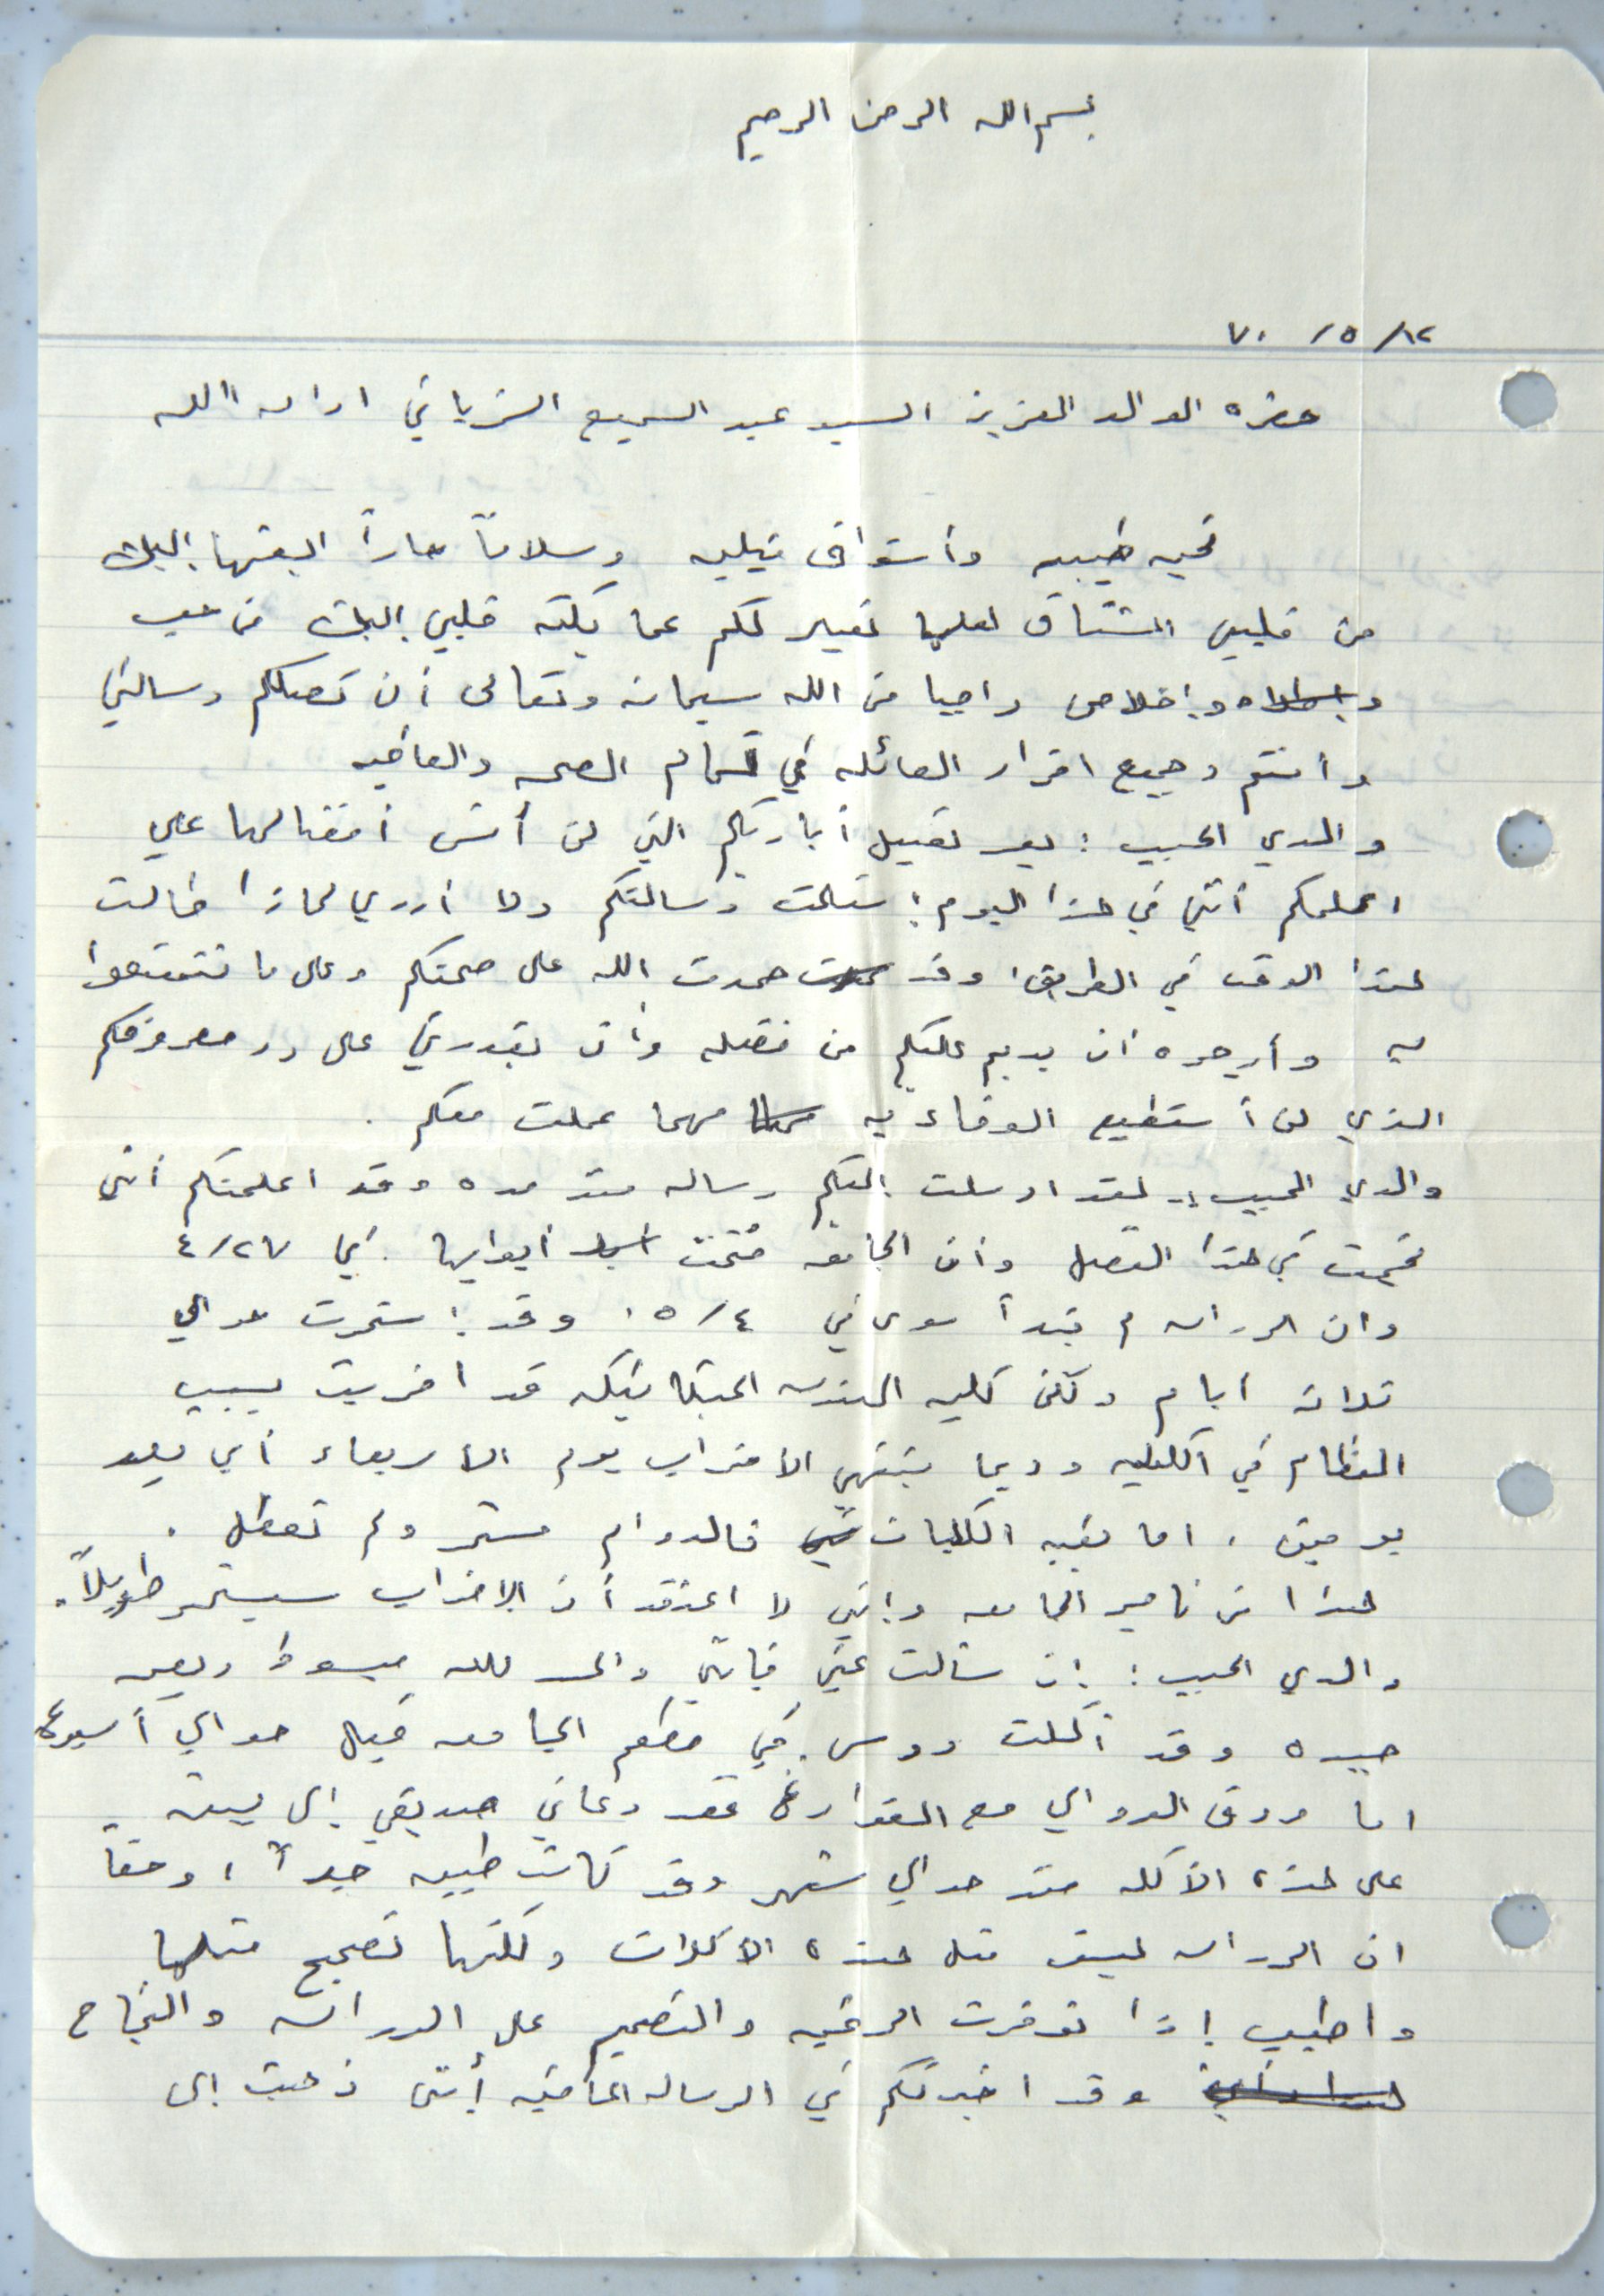 بسم الله الرحمن الرحيم
١٢/ ٥/ ٧٠
حضره الوالد العزيز السيد عبد السميع الزياني ادامه الله
تحيه طيبه وأشواق قلبيه وسلاماً حاراً ابعثها إليك
من قلبي المشتاق لعلها تعبير لكم عما يكنه قلبي إليك من حب
وإخلاص راجيا من الله سبحانه وتعالى أن تصلكم رسالتي
وأنتم وجميع افراد العائله في تمام الصحه والعافيه
والدي الحبيب : بعد تقبيل أياديكم التي لن أنس أفضالها علي
اعلمكم أنني في هذا اليوم إستلمت رسالتكم ولا أدري لماذا طالت
هذا الوقت في الطريق، وقد حمدت الله على صحتكم وعلى ما تتمتعوا
به وأرجوه أن يديم عليكم من فضله وأن يقدرني على رد معروفكم
الذي لن أستطيع الوفاء به مهما عملت معكم .
والدي الحبيب :- لقد ارسلت إليكم رساله منذ مده وقد اعلمتكم أنني
نجحت في هذا الفصل وأن الجامعه فتحت أبوابها في ٤/٢٧
وان الدراسه لم تبدأ سوى في ٥/٤ ، وقد إستمرت حوالي
ثلاثه أيام ولكن كليه الهندسه الميكانيكه قد اضربت بسبب
النظام في الكليه وربما ينتهي الاضراب يوم الاربعاء أي بعد
يومين ، اما بقيه الكليات فالدوام مستمر ولم تعطل .
هذا من ناحيه الجامعه وإنني لا اعتقد أن الإضراب سيستمر طويلاً.
والدي الحبيب : إن سألت عني فإنني والحمد لله مبسوط وبصحه
جيده وقد أكلت روس في مطعم الجامعه قبل حوالي أسبوع
اما ورق الدوالي مع فقد دعاني صديقي إلى بيته
على هذه الأكله منذ حوالي شهر وقد كانت طيبه جداً ، وحقاً
ان الدراسه ليست مثل هذه الاكلات ولكنها تصبح مثلها
واطيب إذا توفرت الرغبه والتصميم على الدراسه والنجاح
وقد اخبرتكم في الرساله الماضيه أنني ذهبت إلى